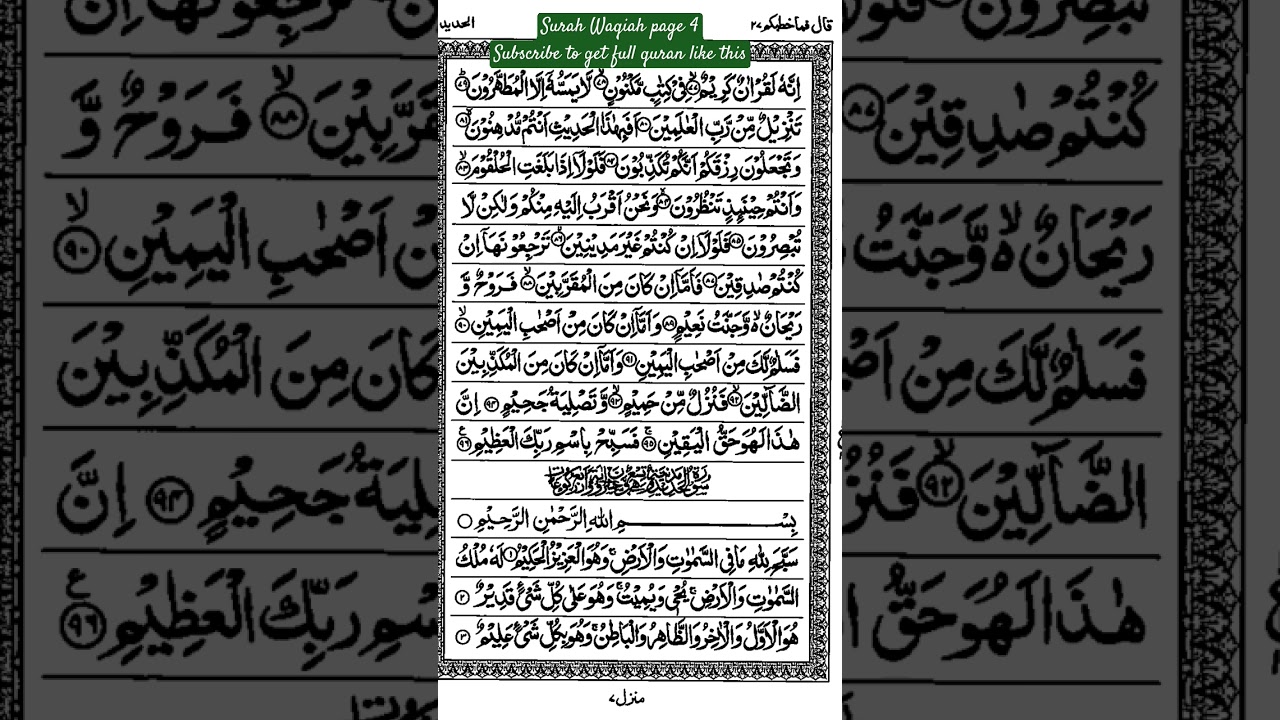 قال فماخطبكم ٢٧
الحديد
Surah Waqiah page 4
Subscribe to get full quran like this
اِنَّهٗ لَقُرْاٰنٌ كَرِيْمٌ ٧٧ فِيْ كِتٰبٍ مَّكْنُوْنٍ ٧٨ لَّا يَمَسُّهٗٓ اِلَّا الْمُطَهَّرُوْنَ ٧٩
تَنْزِيْلٌ مِّنْ رَّبِّ الْعٰلَمِيْنَ ٨٠ اَفَبِهٰذَا الْحَدِيْثِ اَنْتُمْ مُّدْهِنُوْنَ ٨١
وَتَجْعَلُوْنَ رِزْقَكُمْ اَنَّكُمْ تُكَذِّبُوْنَ ٨٢ فَلَوْلَآ اِذَا بَلَغَتِ الْحُلْقُوْمَ ٨٣
وَاَنْتُمْ حِيْنَئِذٍ تَنْظُرُوْنَ ٨٤ وَنَحْنُ اَقْرَبُ اِلَيْهِ مِنْكُمْ وَلٰكِنْ لَّا
تُبْصِرُوْنَ ٨٥ فَلَوْلَآ اِنْ كُنْتُمْ غَيْرَ مَدِيْنِيْنَ ٨٦ تَرْجِعُوْنَهَآ اِنْ
كُنْتُمْ صٰدِقِيْنَ ٨٧ فَاَمَّآ اِنْ كَانَ مِنَ الْمُقَرَّبِيْنَ ٨٨ فَرَوْحٌ وَّ
رَيْحَانٌ ۙ وَّجَنَّتُ نَعِيْمٍ ٨٩ وَاَمَّآ اِنْ كَانَ مِنْ اَصْحٰبِ الْيَمِيْنِ ٩٠
فَسَلٰمٌ لَّكَ مِنْ اَصْحٰبِ الْيَمِيْنِ ٩١ وَاَمَّآ اِنْ كَانَ مِنَ الْمُكَذِّبِيْنَ
الضَّآلِّيْنَ ٩٢ فَنُزُلٌ مِّنْ حَمِيْمٍ ٩٣ وَّتَصْلِيَةُ جَحِيْمٍ ٩٤ اِنَّ
هٰذَا لَهُوَ حَقُّ الْيَقِيْنِ ٩٥ فَسَبِّحْ بِاسْمِ رَبِّكَ الْعَظِيْمِ ٩٦
بِسْمِ اللّٰهِ الرَّحْمٰنِ الرَّحِيْمِ
سَبَّحَ لِلّٰهِ مَا فِي السَّمٰوٰتِ وَالْاَرْضِ ۚ وَهُوَ الْعَزِيْزُ الْحَكِيْمُ ١ لَهٗ مُلْكُ
السَّمٰوٰتِ وَالْاَرْضِ ۚ يُحْيٖ وَيُمِيْتُ ۚ وَهُوَ عَلٰى كُلِّ شَيْءٍ قَدِيْرٌ ٢
هُوَ الْاَوَّلُ وَالْاٰخِرُ وَالظَّاهِرُ وَالْبَاطِنُ ۚ وَهُوَ بِكُلِّ شَيْءٍ عَلِيْمٌ ٣
منزل ٧